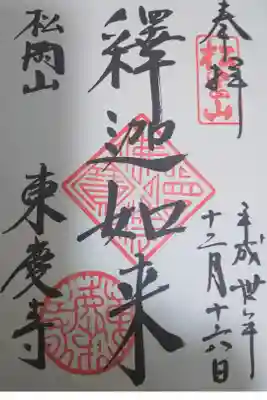 奉拝
松岡山
釋迦如来
平成丗年
十二月十六日
松岡山
東慶寺